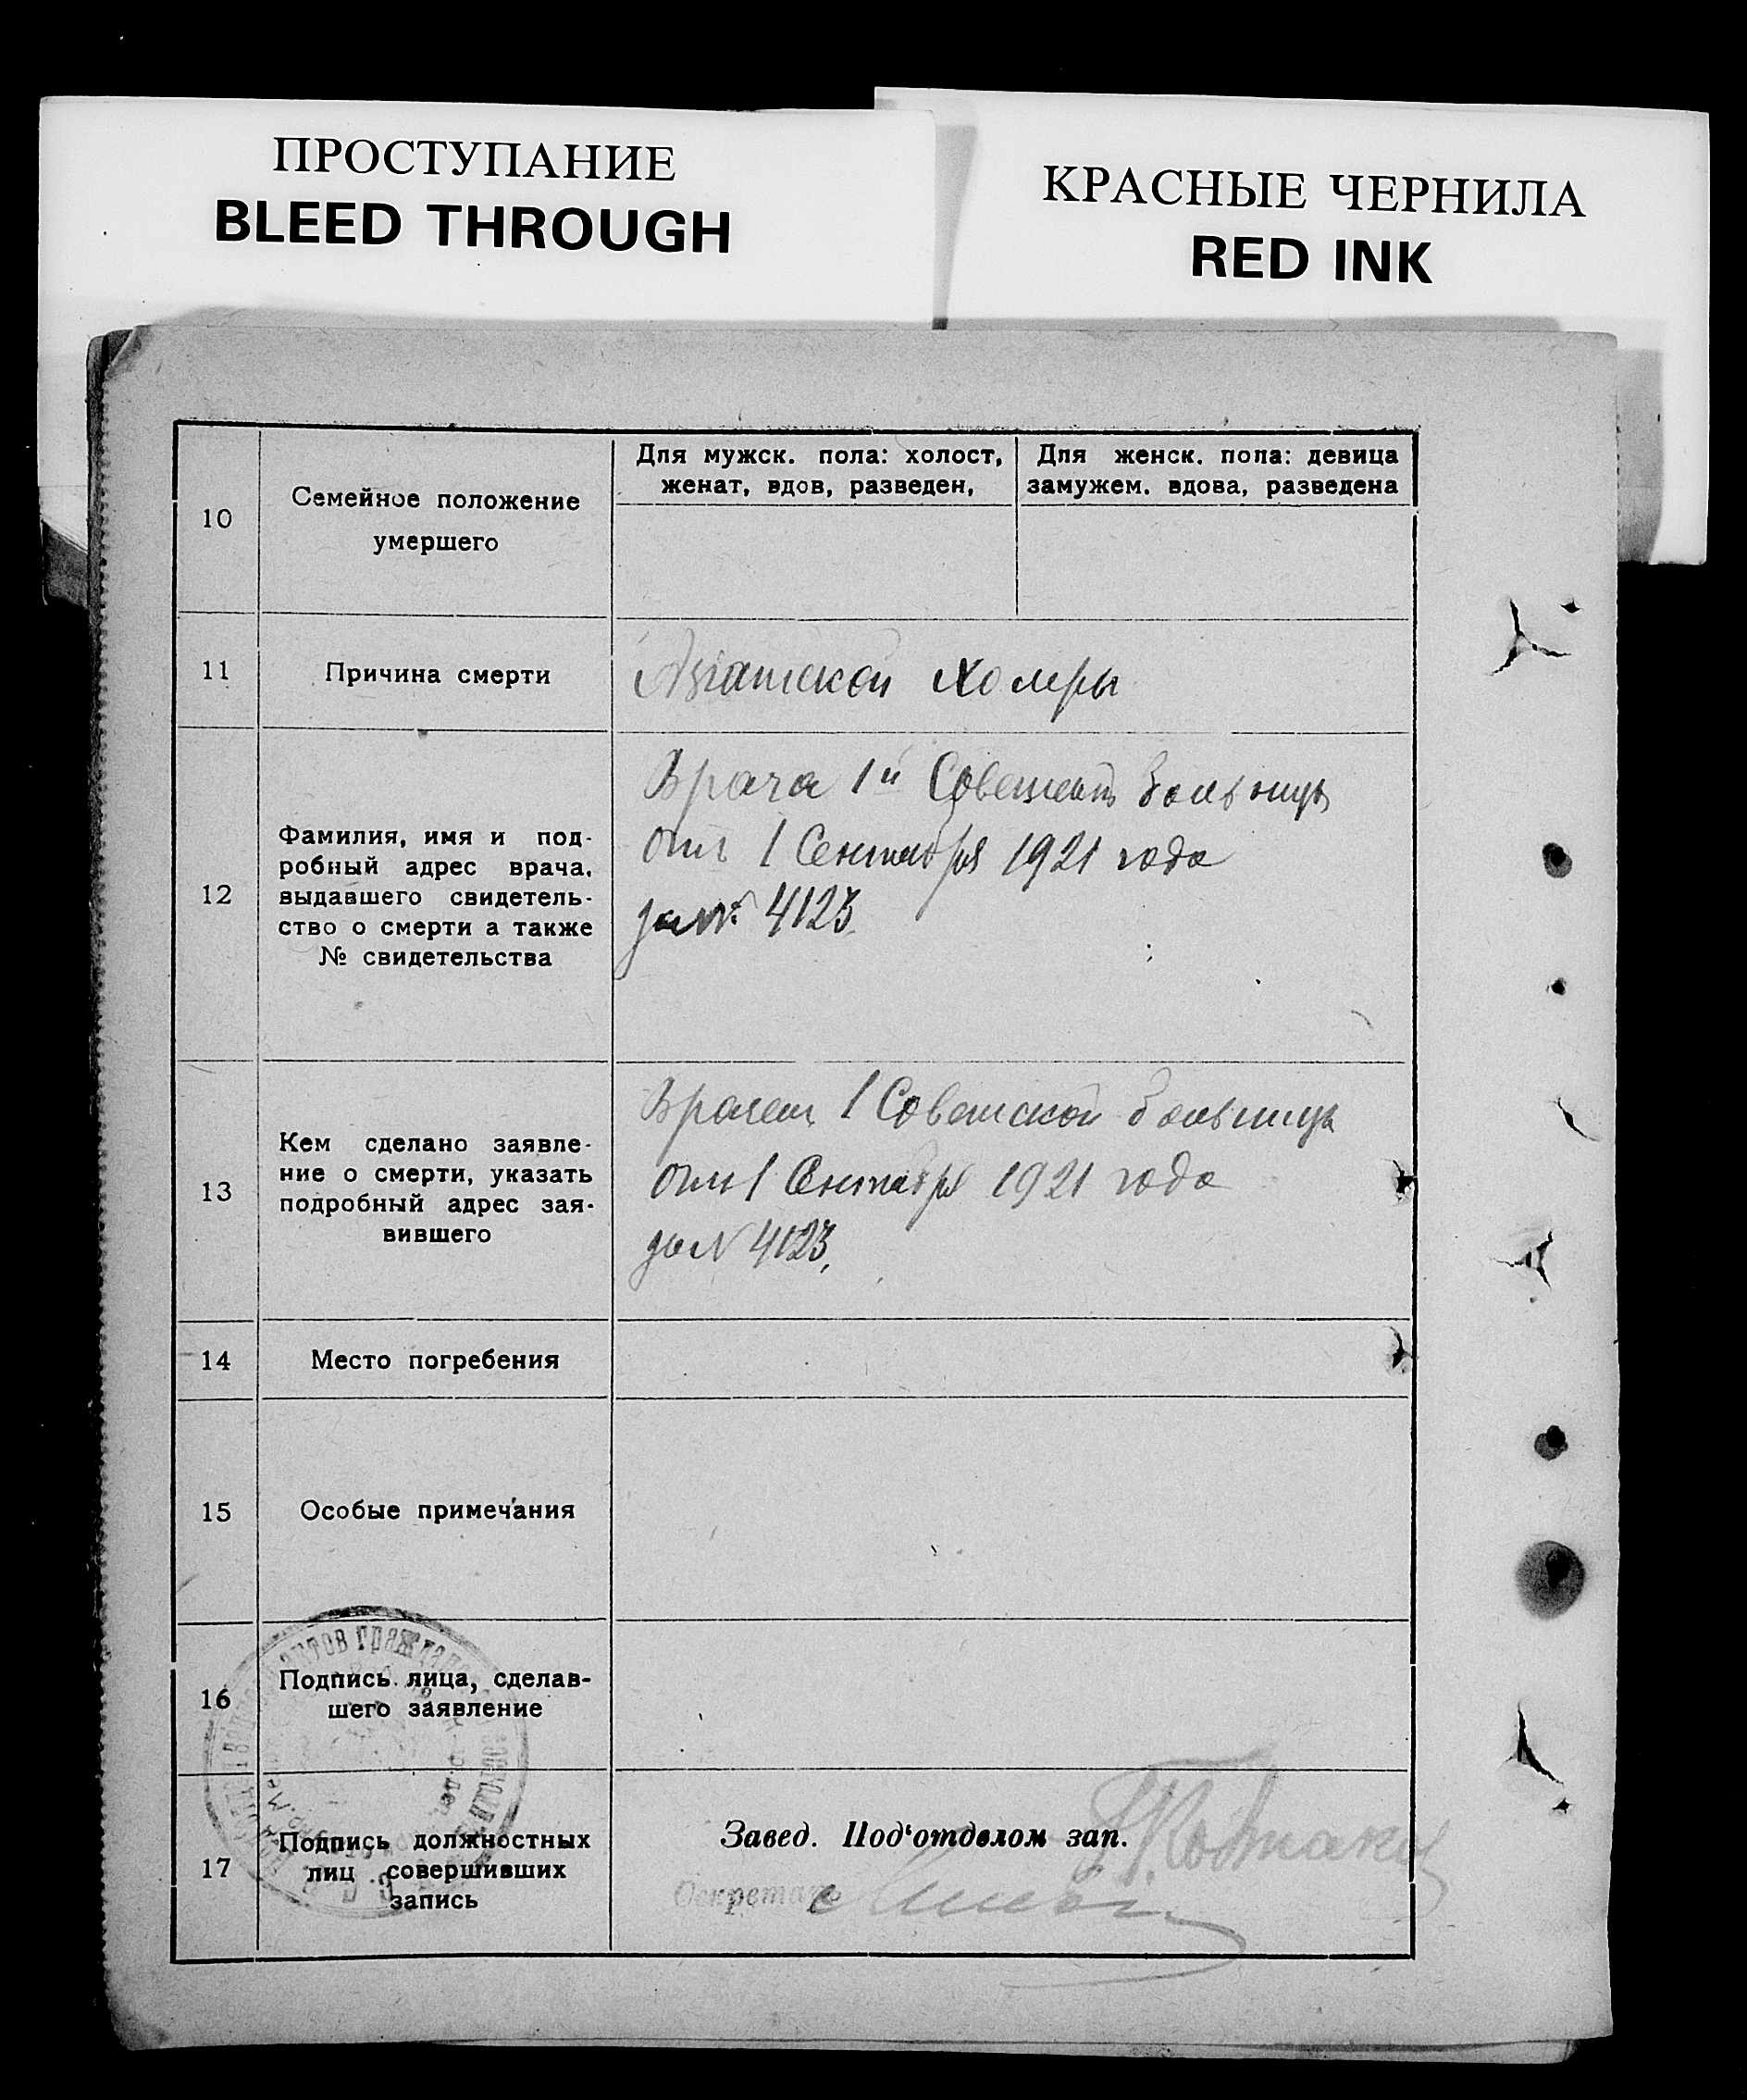 ПРОСТУПАНИЕ
BLEED THROUGH
КРАСНЫЕ ЧЕРНИЛА
RED INK
10
Семейное положение
умершего
Для мужск. пола: холост,
женат, вдов, разведен,
Для женск. пола: девица
замужем. вдова, разведена
11
Причина смерти
Азіатской холеры
12
Фамилия, имя и под-
робный адрес врача,
выдавшего свидетель-
ство о смерти а также
№ свидетельства
Врача 1й Больницы
от 1 Сентября 1921 года
за № 4123
13
Кем сделано заявле-
ние о смерти, указать
подробный адрес зая-
вившего
Врачем 1 Советской Больницы
от 1 Сентября 1921 года
за N 4123,
14
Место погребения
15
Особые примечания
16
Подпись лица, сделав-
шего заявление
17
Подпись должностных
лиц совершивших
запись
Завед. Под‘отделом зап.
Секретарь
актов граждан